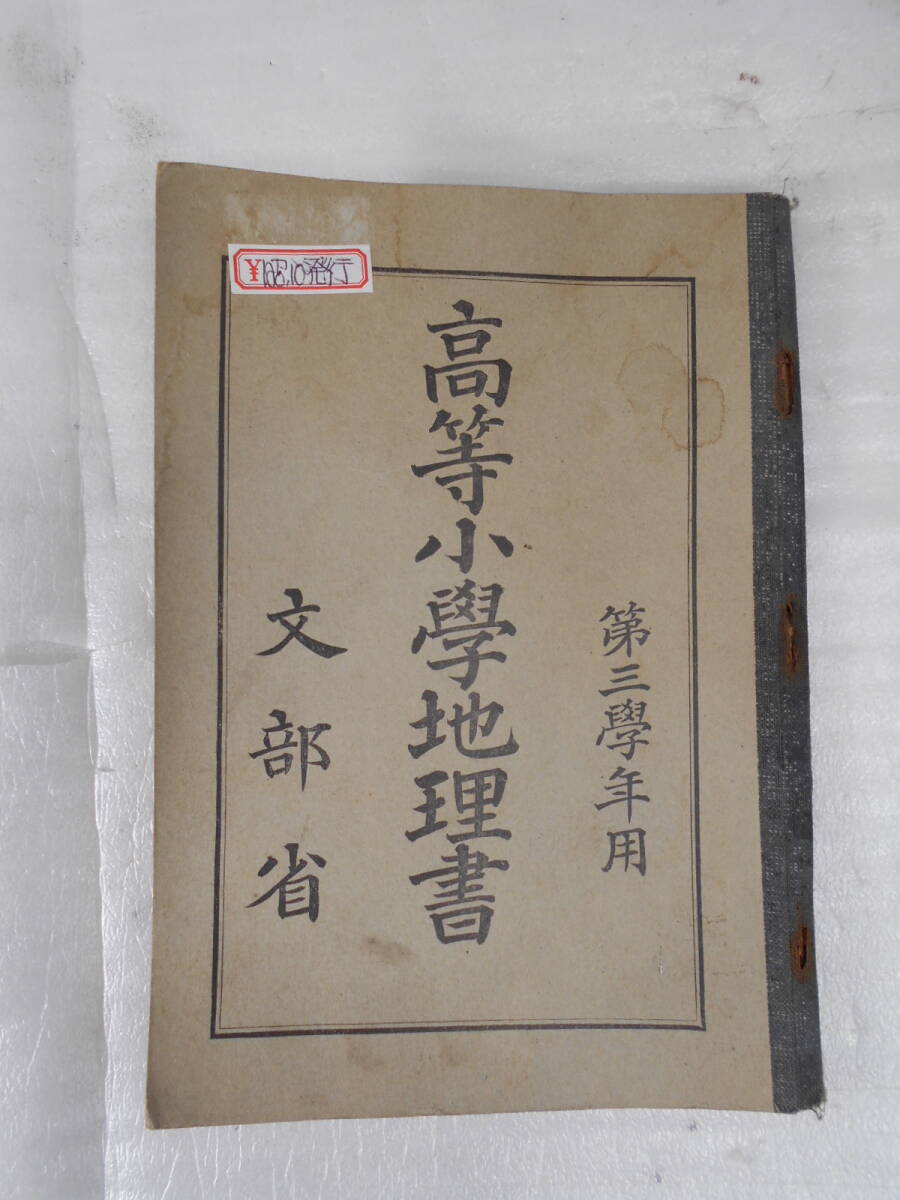 第三學年用
高等小學地理書
文部省
発行